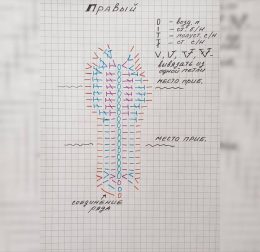 Правый
0 - возд. п
I - ст. б/н
T - полуст. с/н
Ŧ - ст. с/н
V, V, V, V -
вывязать из
одной петли
место приб.
место приб.
соединение
ряда